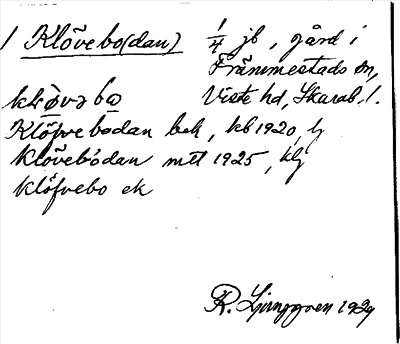 1 Klövebo(dan) 1/4 jb, gård i
Främmestads sn,
klø̀vəbo Viste hd, Skarab. l.
Klöfvebodan bek, kb 1920, lj
Klövebodan mtl 1925, klj
Klöfvebo ek
R. Ljunggren 1929